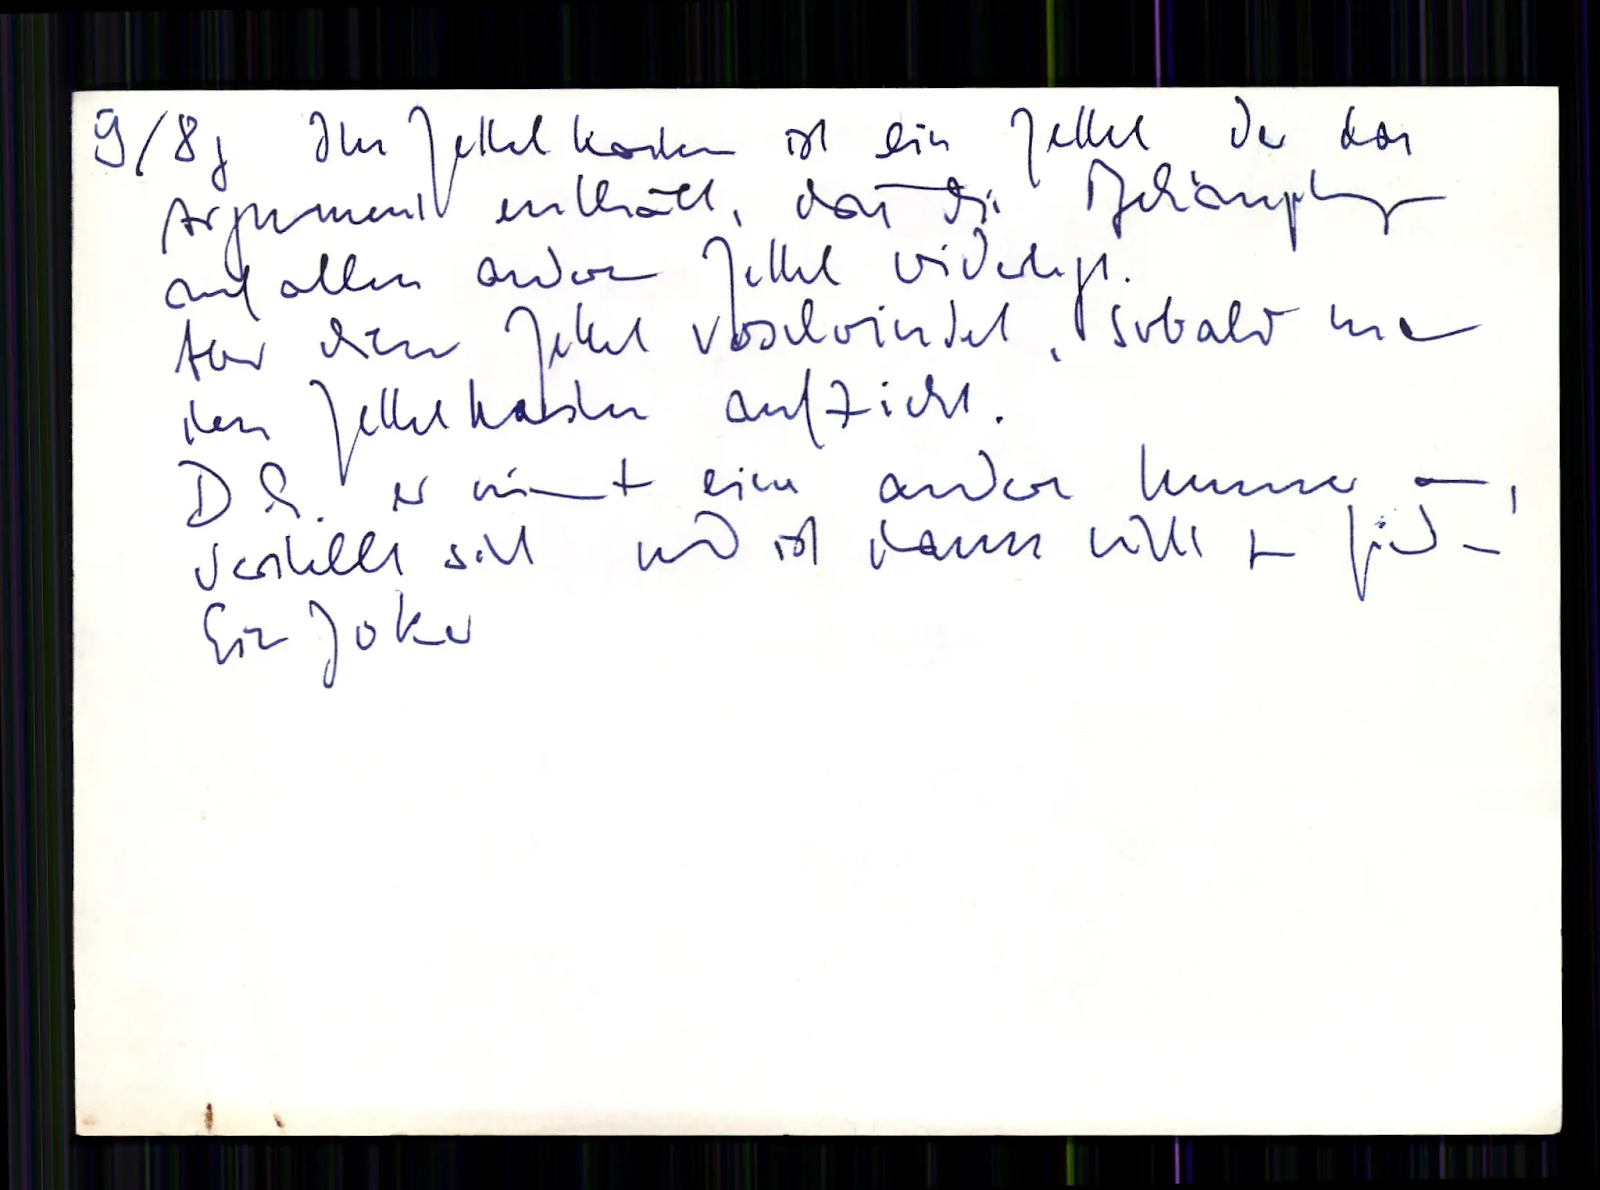 9/8j Im Zettelkasten ist ein Zettel der das
Argument enthält, daß die Behauptungen
auf allen anderen Zetteln widerlegt.
Aber dieser Zettel verschwindet, sobald man
den Zettelkasten aufzieht.
D.h. er nimmt eine andere Nummer an,
verstellt sich und ist dann nicht zu finden.
Ein Joker